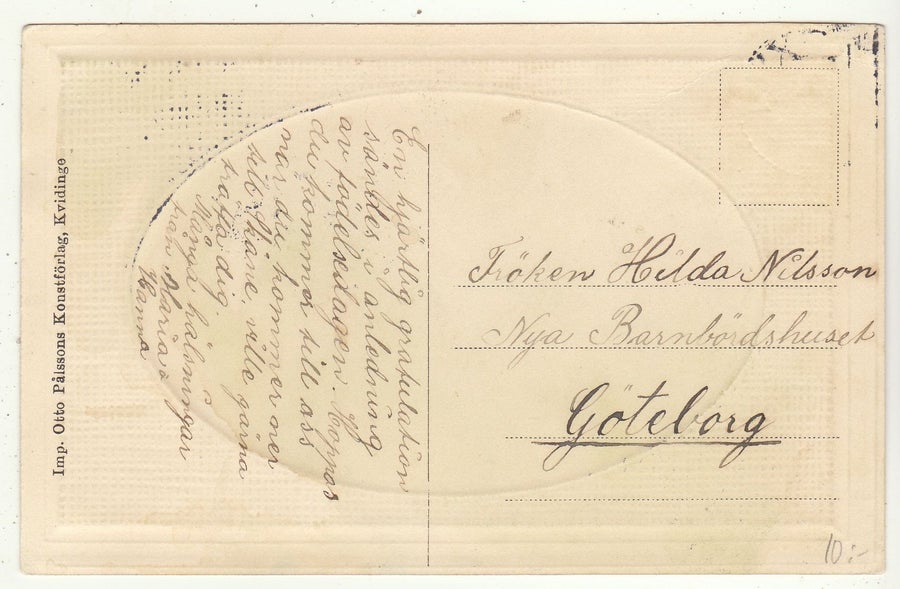 En hjärtlig gratulation
sändes i anledning
av födelsedagen. Hoppas
du kommer till oss
när du kommer ner
till Skåne, ville gärna
träffa dig.
Många hälsningar
från Maria o
Hanna
Fröken Hilda Nilsson
Nya Barnbördshuset
Göteborg
Imp. Otto Pålssons Konstförlag, Kvidinge
10:-